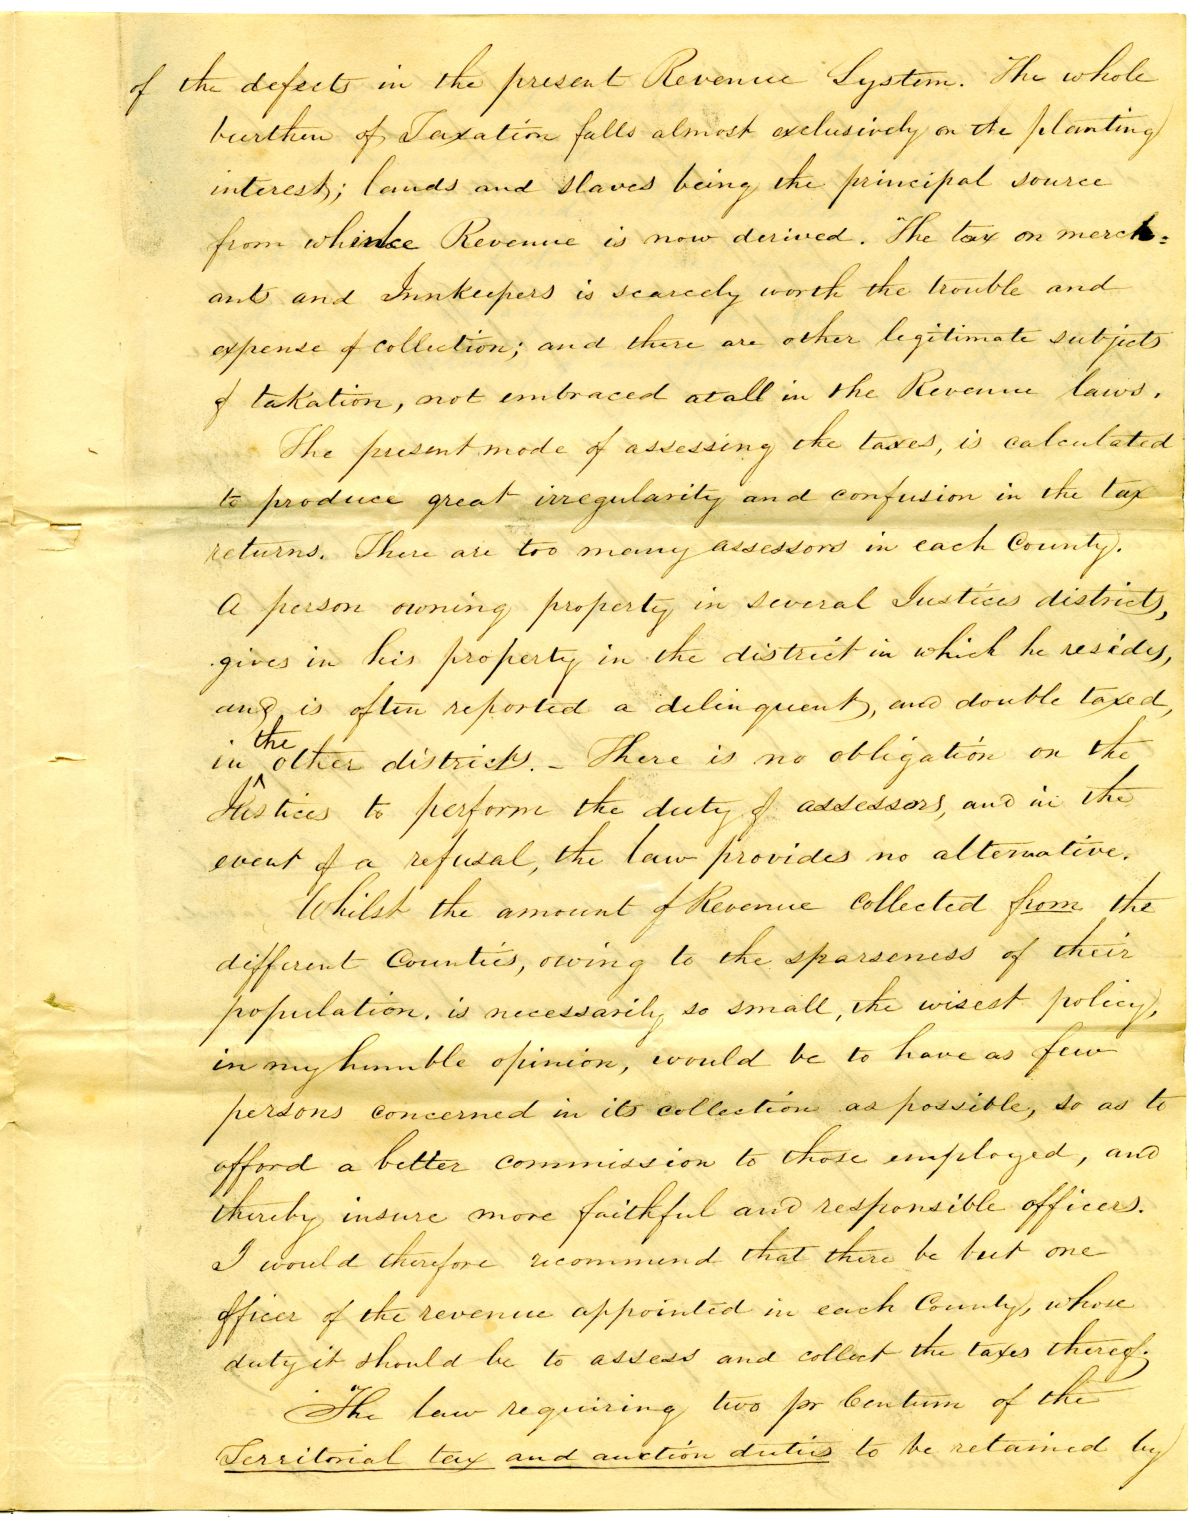 of the defects in the present Revenue System. The whole
burthen of Taxation falls almost exclusively on the planting
interest; lands and slaves being the principal source
from whince Revenue is now derived. The tax on merch=
ants and Innkeepers is scarcely worth the trouble and
expense of collection; and there are other legitimate subjects
of taxation, not embraced at all in the Revenue laws.
The present mode of assessing the taxes, is calculated
to produce great irregularity and confusion in the tax
returns. There are too many assessors in each County.
A person owning property in several Justices districts,
gives in his property in the district in which he resides,
and is often reported a delinquent, and double taxed,
in the other districts. – There is no obligation on the
Justices to perform the duty of assessors, and in the
event of a refusal, the law provides no alternative.
Whilst the amount of Revenue collected from the
different Counties, owing to the sparseness of their
population, is necessarily so small, the wisest policy,
in my humble opinion, would be to have as few
persons concerned in its collection as possible, so as to
afford a better commission to those employed, and
thereby insure more faithful and responsible officers.
I would therefore recommend that there be but one
officer of the revenue appointed in each County, whose
duty it should be to assess and collect the taxes thereof.
The law requiring two pr Centum of the
Territorial tax and auction duties to be retained by